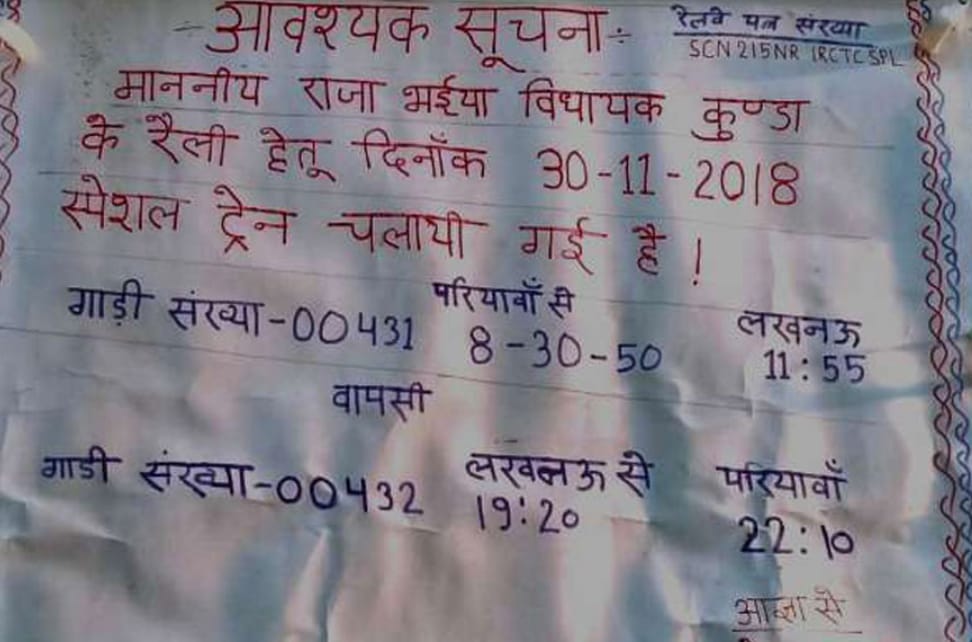 आवश्यक सूचना:-
रेलवे पत्र संख्या
SCN 215NR IRCTC SPL
माननीय राजा भईया विधायक कुण्डा
के रैली हेतू दिनाँक 30-11-2018
स्पेशल ट्रेन चलायी गई है !
गाड़ी संख्या-00431 परियावाँ से लखनऊ
8-30-50 11:55
वापसी
गाडी संख्या-00432 लखनऊ से परियावाँ
19:20 22:10
आज्ञा से